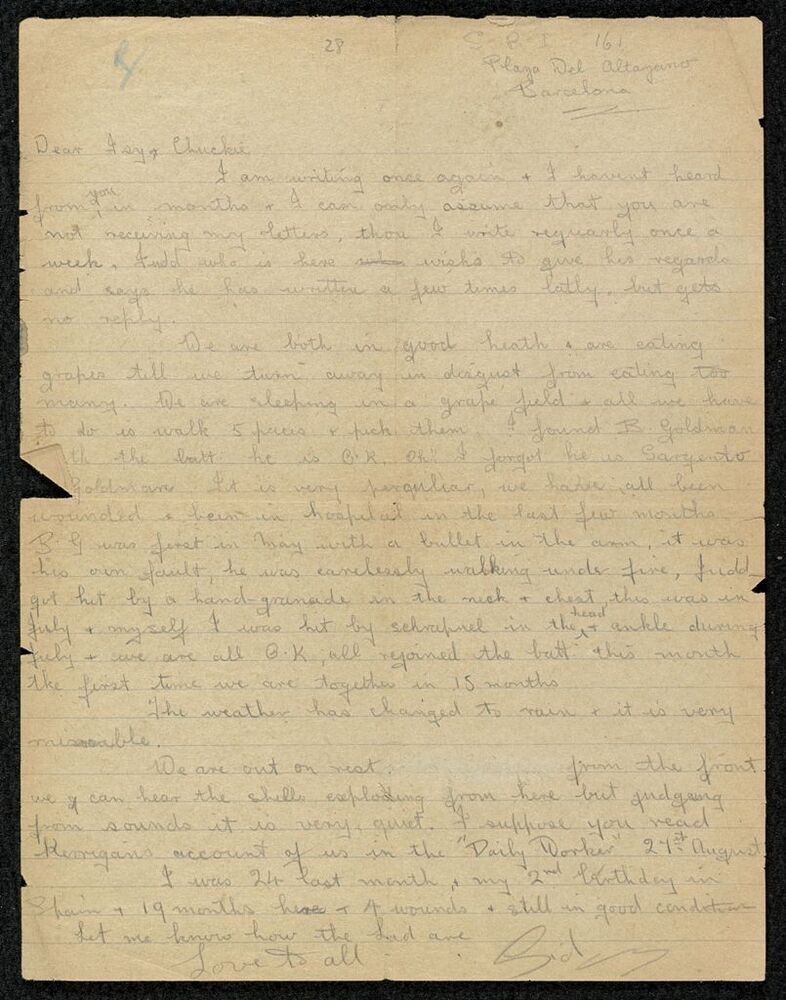 28
S. R. I. 161
Plaza Del Altazano
Barcelona
Dear Issy & Chuckie
I am writing once again & I havent heard
from you in months & I can only assume that you are
not receiving my letters, thou I write reguarly once a
week. Judd who is here wishs to give his regards
and says he has written a few times latly, but gets
no reply.
We are both in good heath & are eating
grapes till we turn away in disgust from eating too
many. We are sleeping in a grape field & all we have
to do is walk 5 paces & pick them. I found B. Goldman
th the batt. he is O.K. Oh! I forgot he is Sargento
Goldman. It is very perquliar, we have all been
wounded & been in hospital in the last few months
B. G was first in May with a bullet in the arm, it was
his own fault, he was carelessly walking under fire, Judd
got hit by a hand-granade in the neck & chest this was in
July & myself I was hit by schrapnel in the head & ankle during
July & we are all O.K, all rejoined the batt this month
the first time we are together in 15 months
The weather has changed to rain & it is very
miserable.
We are out on rest. from the front
we can hear the shells exploding from here but judgeing
from sounds it is very quiet. I suppose you read
Kerrigans account of us in the "Daily Worker" 27st August
I was 24 last month, my 2nd birthday in
Spain & 19 months here & 4 wounds & still in good condition
Let me know how the Lad are
Love to all Sid